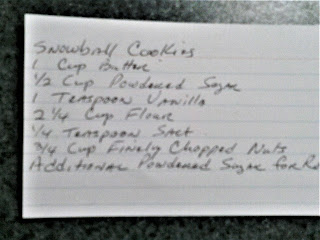 Snowball Cookies
1 Cup Butter
1/2 Cup Powdered Sugar
1 Teaspoon Vanilla
2 1/4 Cup Flour
1/4 Teaspoon Salt
3/4 Cup Finely Chopped Nuts
Additional Powdered Sugar for